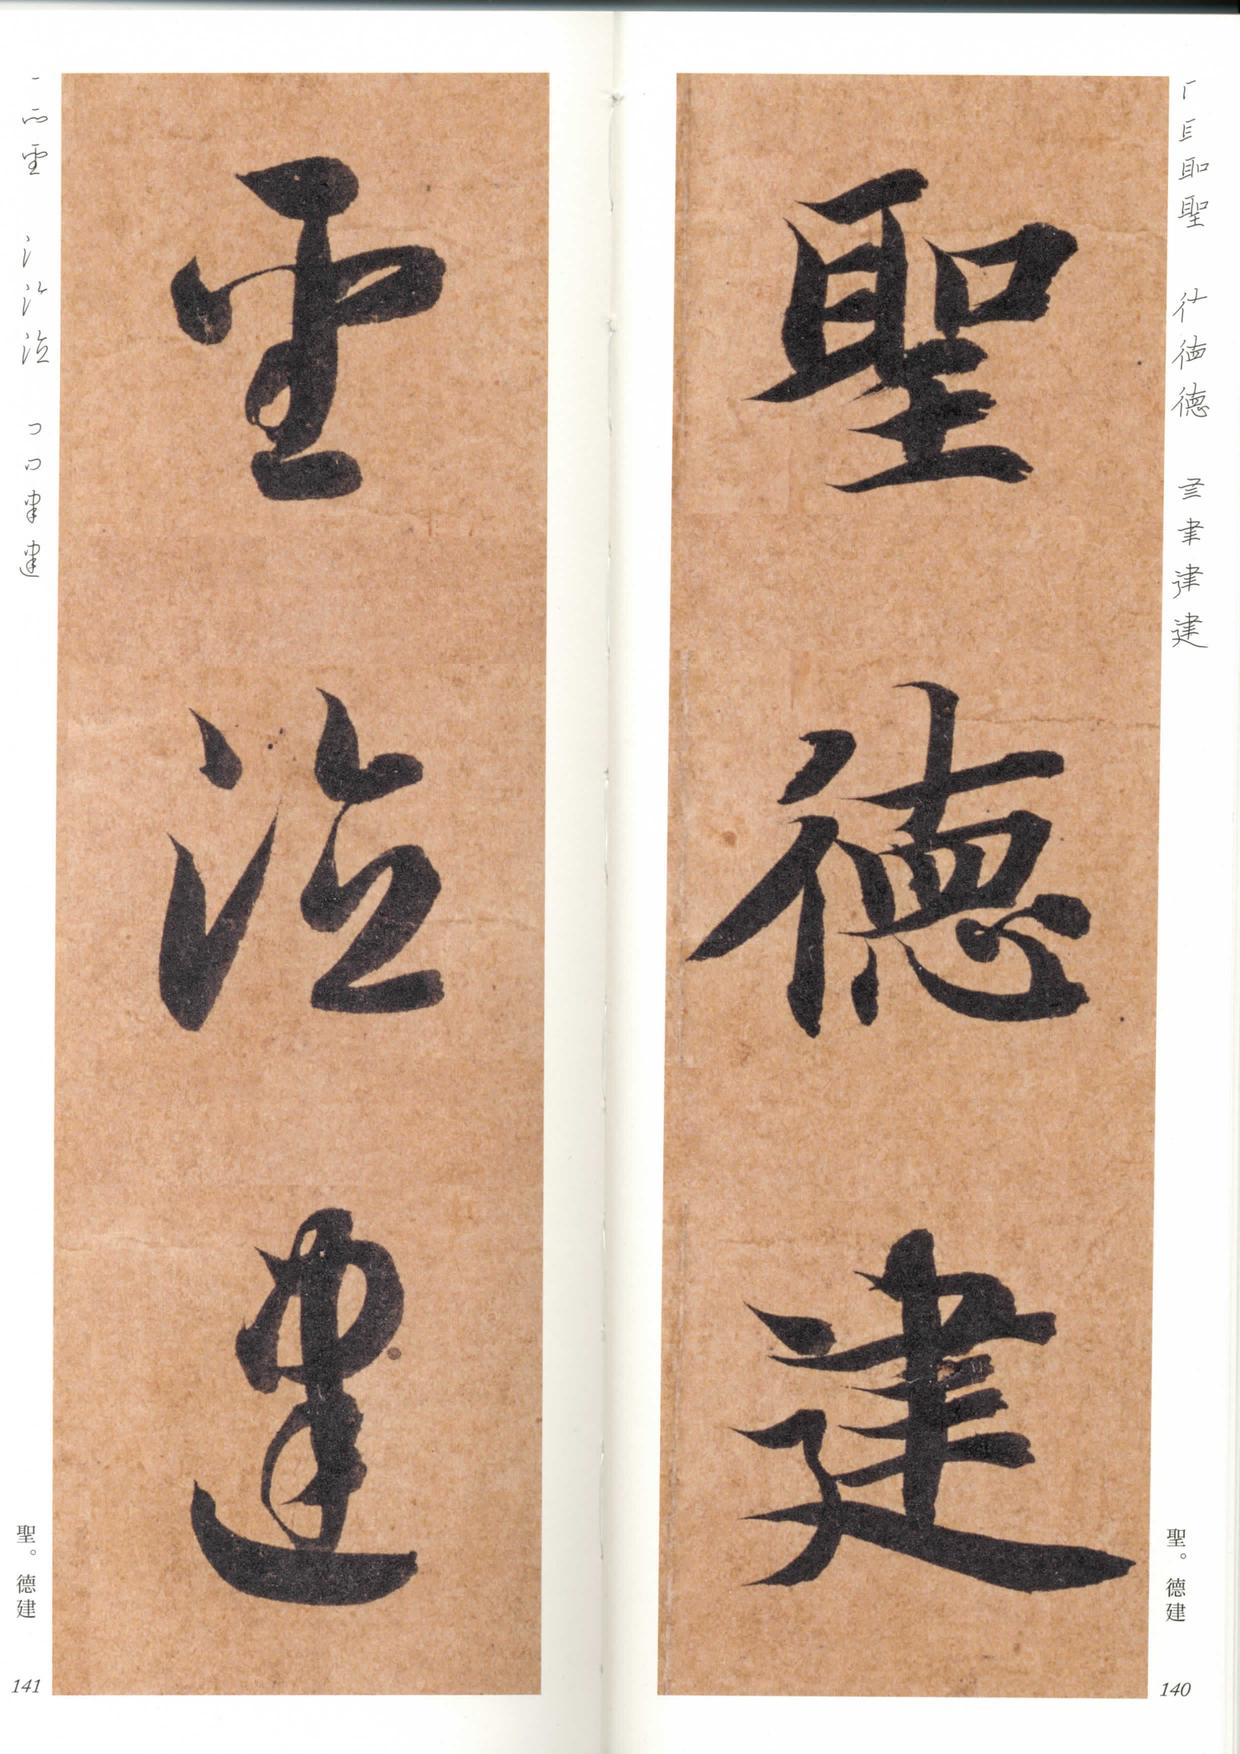 聖德建
聖。德建
140
聖德建
聖。德建
141